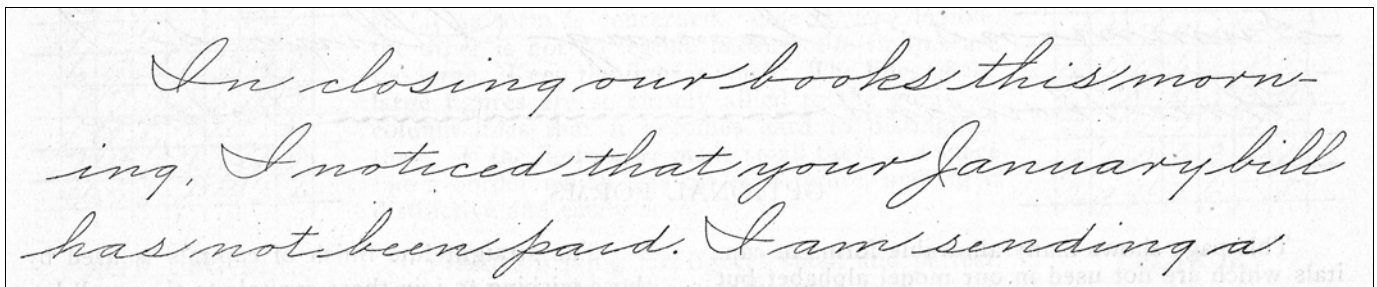 In closing our books this morn-
ing, I noticed that your January bill
has not been paid. I am sending a